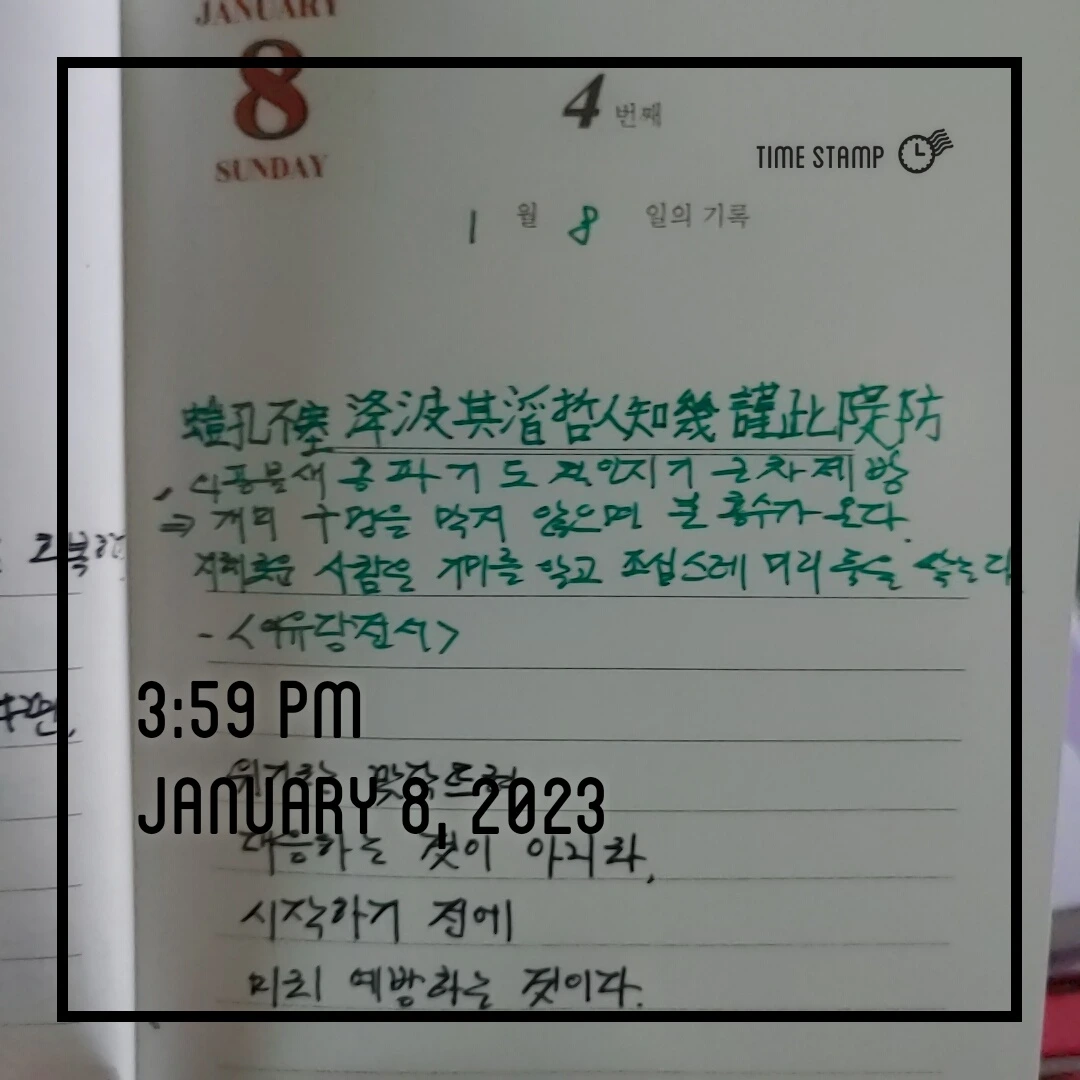 JANUARY
8
SUNDAY
4 번째
TIME STAMP
1 월 8 일의 기록
孔不塞 洚波其滔 哲人知幾 謹此隄防
기도 철인지기 근차제방
⇒ 개미 구멍을 막지 않으면 큰 홍수가 온다.
지혜로운 사람은 기미를 알고 조심스레 미리 둑을 쌓는다
- <여유당전서>
3:59 PM
맞닥뜨려
JANUARY 8, 2023
대응하는 것이 아니라,
시작하기 전에
미리 예방하는 것이다.